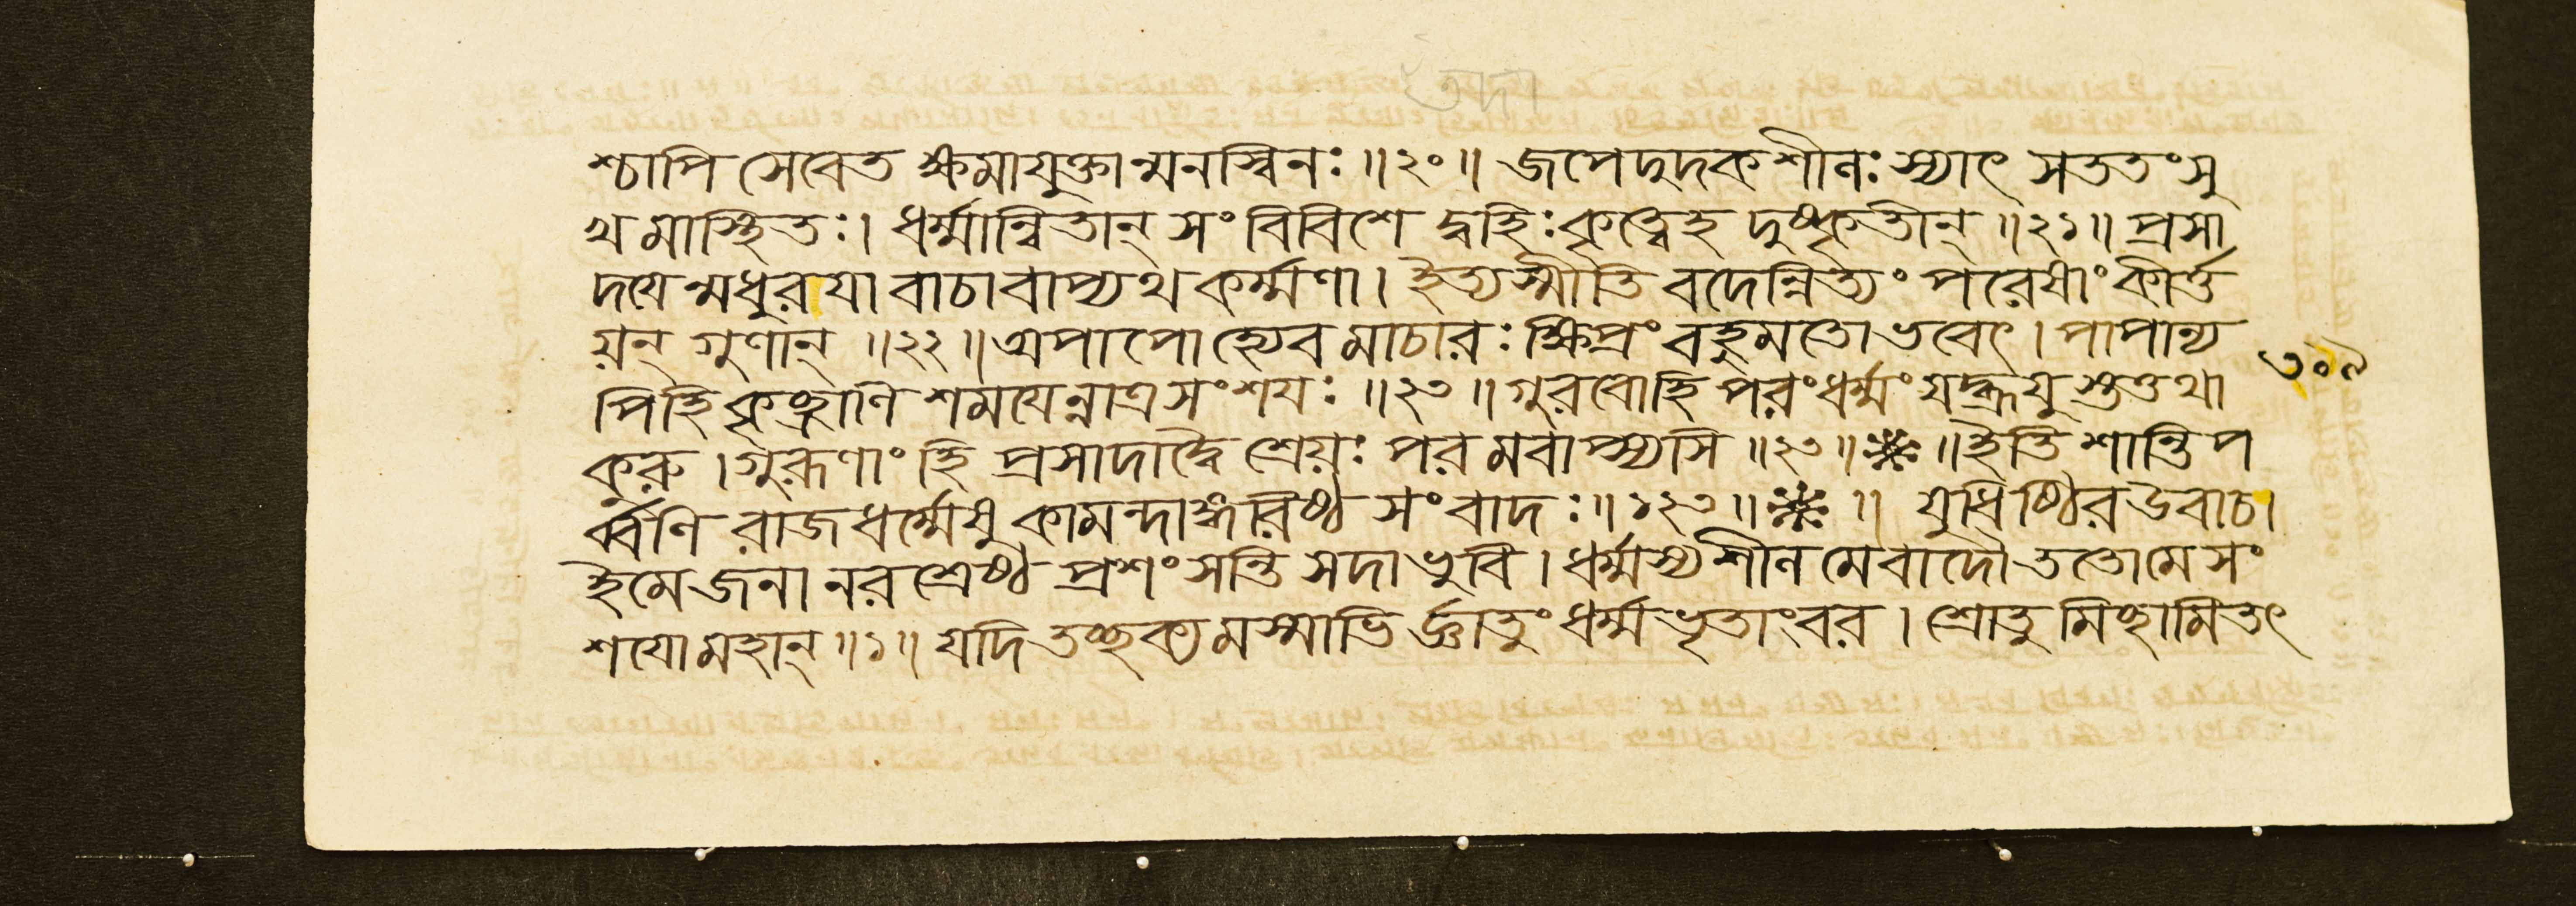 শ্চাপি সেবেত ক্ষমাযুক্তান্মনস্বিনঃ ॥২০॥ জপেদুদকশীলঃ স্যাৎ সততং সু
খমাস্থিতঃ। ধর্ম্মান্বিতান্ সংবিবিশে দ্বহিঃকৃত্বেহ দুষ্কৃতীন্ ॥২১॥ প্রসা
দয়েন্মধুরয়া বাচা বাপ্যথ কর্ম্মণা। ইত্যস্মীতি বদেন্নিত্যং পরেষাং কীর্ত্ত
য়ন্ গুণান্ ॥২২॥ অপাপোহ্যেবমাচারঃ ক্ষিপ্রং বহুমতোভবেৎ। পাপান্য
পিহি কৃচ্ছ্রাণি শময়েন্নাত্রসংশয়ঃ ॥২৩॥ গুরবোহি পরং ধর্ম্মং যদ্ব্রূয়ু স্তত্তথা
কুরু। গুরূণাং হি প্রসাদাদ্বৈ শ্রেয়ঃ পরমবাপ্স্যসি ॥২৩॥※॥ ইতি শান্তিপ
র্ব্বণি রাজধর্ম্মেষু কামন্দাঙ্গরিষ্ঠ সংবাদঃ ॥১২৩॥※॥ যুধিষ্ঠির উবাচ।
ইমে জনা নরশ্রেষ্ঠ প্রশংসন্তি সদা ভুবি। ধর্ম্মস্য শীলমেবাদৌ ততোমে সং
শয়ো মহান্ ॥১॥ যদি তচ্ছক্যমস্মাভি র্জ্ঞাতুং ধর্ম্মভৃতাংবর। শ্রোতুমিচ্ছামি তৎ
৩০৯